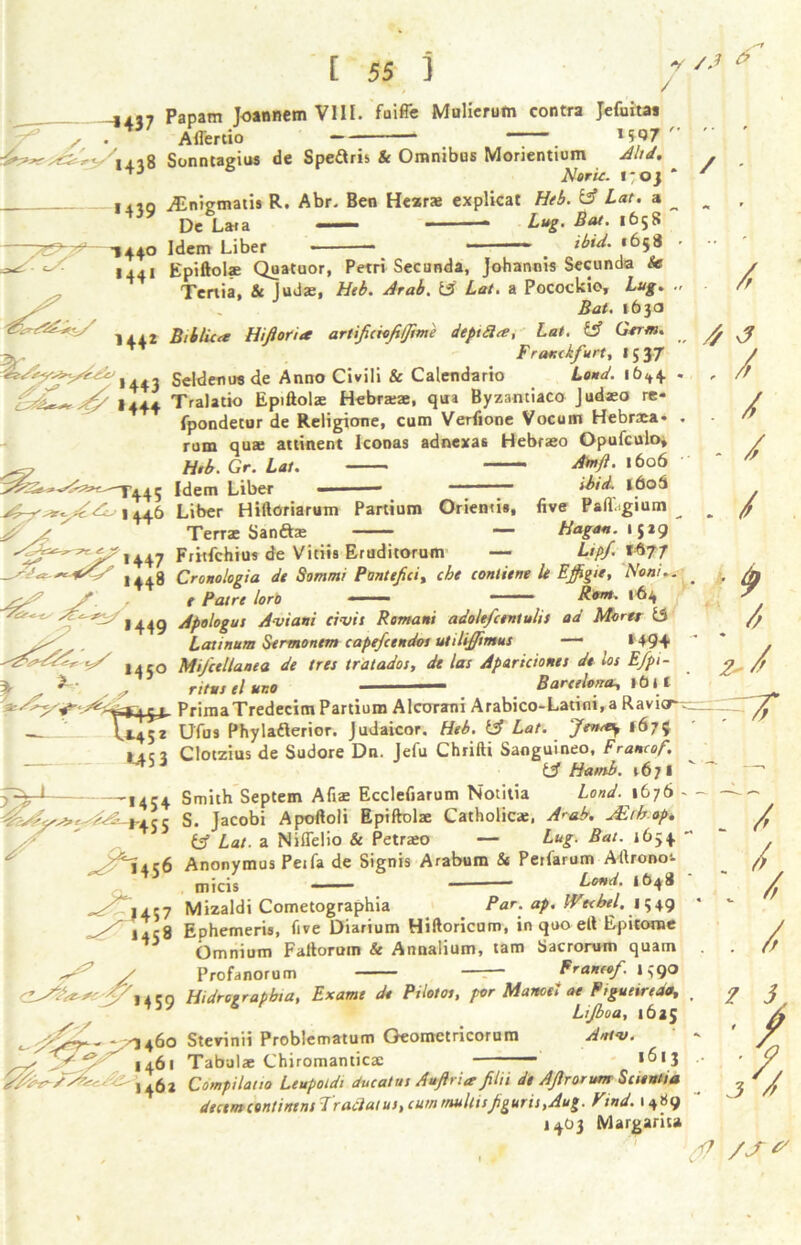 [ 55 ]
1437 Papam Joannem VIII. fuiſſe Mulierum contra Jeſuitas
Aſſertio —— —— 1597
1438 Sonntagius de Spectris & Omnibus Morientium Altd.
Noric. 1703
1439 Ænigmatis R. Abr. Ben Hezræ explicat Heb. & Lat. a
De Lara —— —— Lug. Bat. 1658
1440 Idem Liber —— —— ibid. 1658
1441 Epiſtolæ Quatuor, Petri Secunda, Johannis Secunda &
Tertia, & Judæ, Heb. Arab. & Lat. a Pocockio, Lug.
Bat. 1630
1442 Biblicæ Hiſtoriæ artificioſiſſimè depictæ, Lat. & Germ.
Franckfurt, 1537
1443 Seldenus de Anno Civili & Calendario Lond. 1644
1444 Tralatio Epiſtolæ Hebrææ, qua Byzantiaco Judæo re-
ſpondetur de Religione, cum Verſione Vocum Hebræa-
rum quæ attinent Iconas adnexas Hebræo Opuſculo,
Heb. Gr. Lat. —— —— Amſt. 1606
1445 Idem Liber —— —— ibid. 1606
1446 Liber Hiſtoriarum Partium Orientis, ſive Paſſagium
Terræ Sanctæ —— — Hagan. 1529
1447 Fritſchius de Vitiis Eruditorum — Lipſ. 1677
1448 Cronologia de Sommi Pontefici, che contiene le Effigie, Noni..
e Patre loro —— —— Rom. 164
1449 Apologus Aviani civis Romani adoleſcentulis ad Mores &
Latinum Sermonem capeſcendos utiliſſimus — 1494
1450 Miſcellanea de tres tratados, de las Apariciones de los Eſpi-
ritus el uno —— Barcelona, 1611
1451 Prima Tredecim Partium Alcorani Arabico-Latini, a Ravior
1452 Uſus Phylacterior. Judaicor. Heb. & Lat. Jenæ, 1675
1453 Clotzius de Sudore Dn. Jeſu Chriſti Sanguineo, Francof.
& Hamb. 1671
1454 Smith Septem Aſiæ Eccleſiarum Notitia Lond. 1676
1455 S. Jacobi Apoſtoli Epiſtolæ Catholicæ, Arab. Æthiop.
& Lat. a Niſſelio & Petræo — Lug. Bat. 1654
1456 Anonymus Perſa de Signis Arabum & Perſarum Aſtrono-
micis —— —— Lond. 1648
1457 Mizaldi Cometographia Par. ap. Wechel. 1549
1458 Ephemeris, ſive Diarium Hiſtoricum, in quo eſt Epitome
Omnium Faſtorum & Annalium, tam Sacrorum quam
Profanorum —— —— Francof. 1590
1459 Hidrographia, Exame de Pilotos, por Manoel de Figueiredo,
Liſboa, 1625
1460 Stevinii Problematum Geometricorum Antv.
1461 Tabulæ Chiromanticæ —— 1613
1462 Compilatio Leupoldi ducatus Auſtriæ filii de Aſtrorum Scientia
decem continens Tractatus, cum multis figuris, Aug. Vind. 1489
1403 Margarita